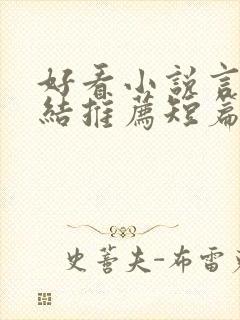 好看小說言
結推薦短篇
史蒂夫-布雷